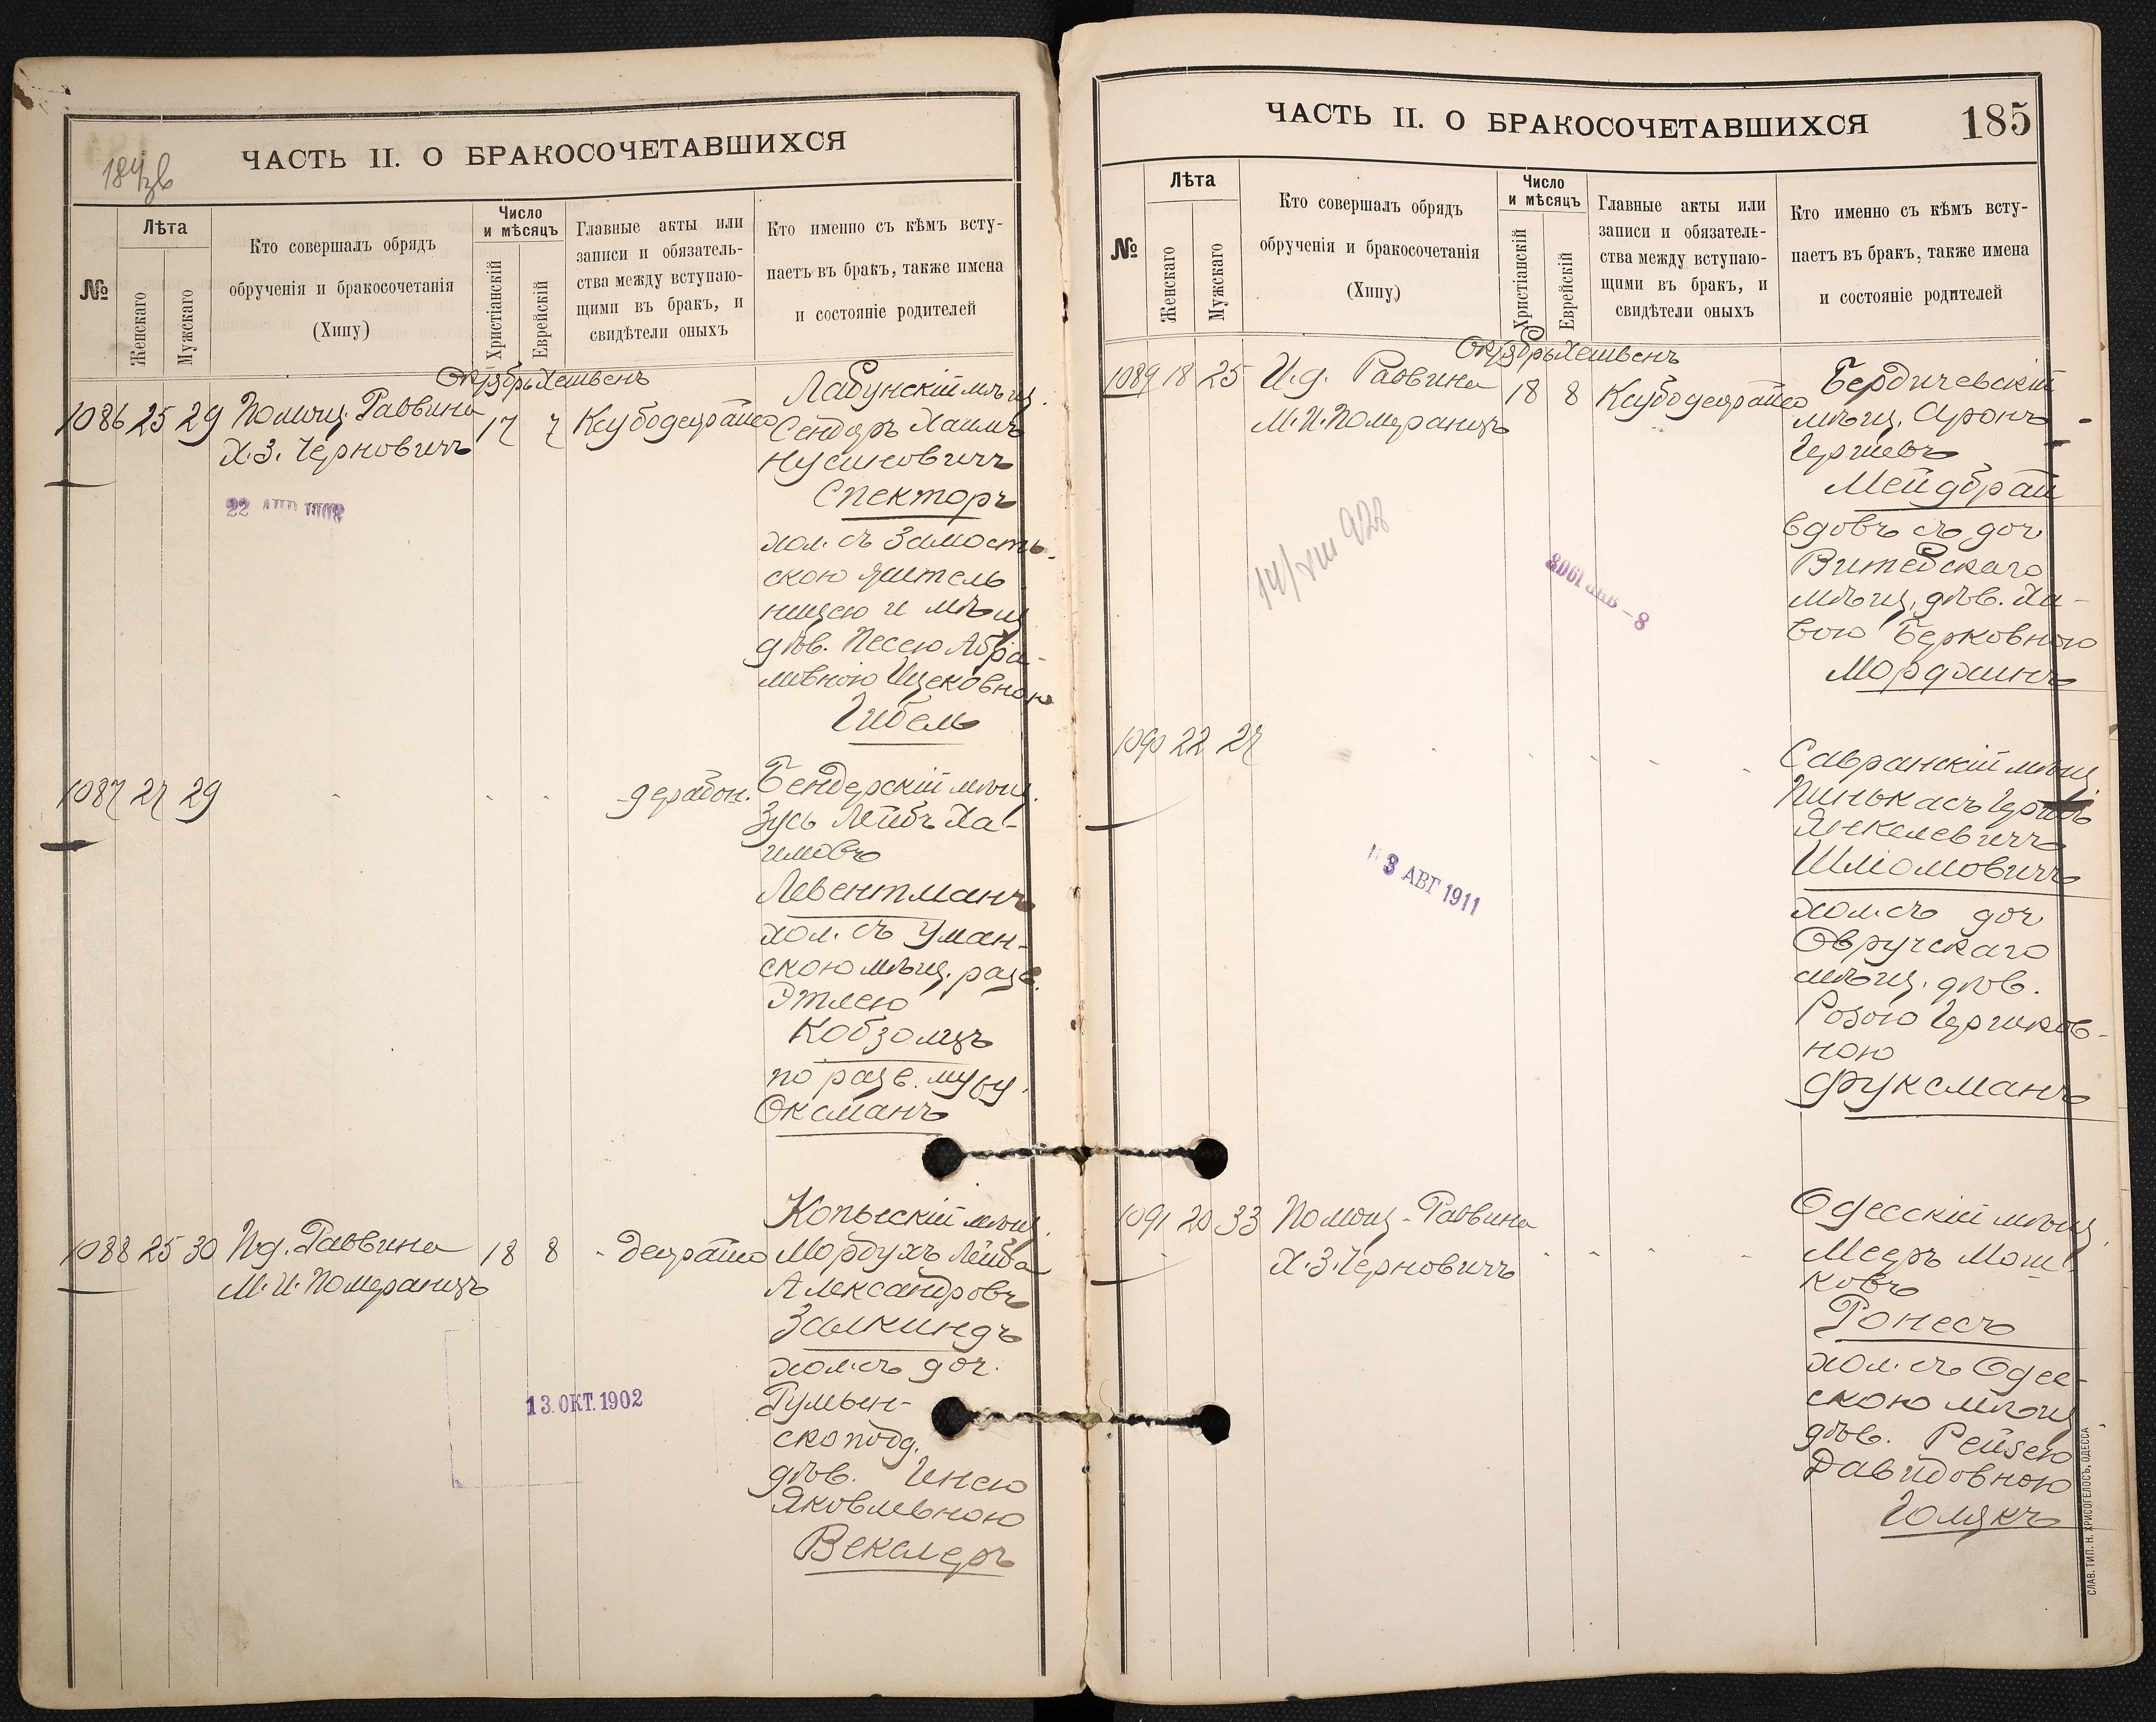 184/зв
ЧАСТЬ II. О БРАКОСОЧЕТАВШИХСЯ
№
Лѣта
Женскаго
Мужскаго
Кто совершалъ обрядъ
обрученія и бракосочетанія
(Хипу)
Число
и мѣсяцъ
Христіанскій
Еврейскій
Главные акты или
записи и обязатель-
ства между вступаю-
щими въ бракъ, и
свидѣтели оныхъ
Кто именно съ кѣмъ всту-
паетъ въ бракъ, также имена
и состояніе родителей
Октябрь Хешвенъ
1086 25 29 Помощ. Раввина 17 7
Х.З. Черновичъ
Лабунскій мѣщ.
Сендеръ Хаимъ
Нусиновичъ
Спекторъ
хол. съ Замость-
скою житель
ницею и мѣщ
дѣв. Песею Абра-
мовною Ицековною
Гибель
22
1087 27 29
Бендерскій мѣщ.
Зусь Лейбъ Ха-
имовъ
Левентманъ
хол. съ Уман-
скою мѣщ. разв.
Этлею
Кобзолцъ
по разв. мужу
Оксманъ
1088 25 30 И.д. Раввина 18 8
М.И. Померанцъ
Копысскій мѣщ.
Мордухъ Лейба
Александровъ
Залкиндъ
хол. съ доч.
Румын-
ско подд.
дѣв. Инею
Яковлевною
Векслеръ
13 ОКТ. 1902
ЧАСТЬ II. О БРАКОСОЧЕТАВШИХСЯ
185
№
Лѣта
Женскаго
Мужскаго
Кто совершалъ обрядъ
обрученія и бракосочетанія
(Хипу)
Число
и мѣсяцъ
Христіанскій
Еврейскій
Главные акты или
записи и обязатель-
ства между вступаю-
щими въ бракъ, и
свидѣтели оныхъ
Кто именно съ кѣмъ всту-
паетъ въ бракъ, также имена
и состояніе родителей
Октябрь Хешвенъ
1089 18 25 И.д. Раввина 18 8
М.И. Померанцъ
Бердичевскій
мѣщ. Аронъ
Гершевъ
Мейдбрай
вдовъ съ доч
Витебскаго
мѣщ. дѣв. Ха-
вою Берковною
Мордхинъ
14/VIII 928
8 1908
1090 22 27
Савранскій мѣщ
Пинькасъ Гершъ
Янкелевичъ
Шліомовичъ
хол. съ доч
Овручскаго
мѣщ. дѣв.
Розою Гершков-
ною
Фуксманъ
3 АВГ 1911
1091 20 33 Помощ. Раввина
Х.З. Черновичъ
Одесскій мѣщ.
Мееръ Мош-
ковъ
Ронесъ
хол. съ Одес-
скою мѣщ
дѣв. Рейзею
Давидовною
Голякъ
СЛАВ. ТИП. Н. ХРИСОГЕЛОСЪ, ОДЕССА